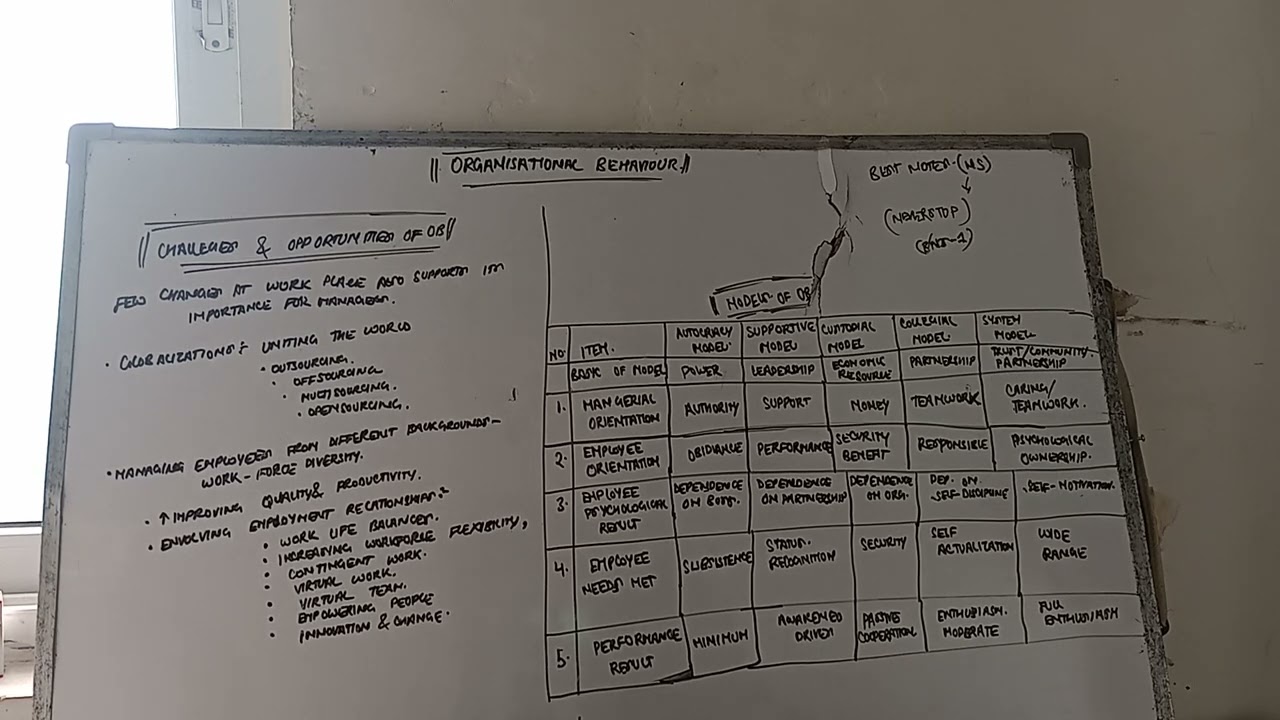 ORGANISATIONAL BEHAVIOUR
BEST NOTES-(MS)
(NEVERSTOP)
CHALLEGES & OPPORTUNITIES OF OB
FEW CHANGES AT WORK PLACE ALSO SUPPORTS IN
IMPORTANCE FOR MANAGERS.
• GLOBALIZATIONS:- UNITING THE WORLD
• OUTSOURCING.
• OFFSOURCING
• MULTISOURCING.
• OPENSOURCING.
• MANAGING EMPLOYEES FROM DIFFERENT BACKGROUNDS-
WORK-FORCE DIVERSITY.
• ↑ IMPROVING QUALITY & PRODUCTIVITY.
• ENVOLVING EMPLOYMENT RELATIONSHIP:-
• WORK LIFE BALANCES.
• INCREASING WORKFORCE FLEXIBILITY,
• CONTINGENT WORK.
• VIRTUAL WORK.
• VIRTUAL TEAM.
• EMPOWERING PEOPLE
• INNOVATION & CHANGE.
MODELS OF OB
NO. ITEM. AUTOCRACY MODEL. SUPPORTIVE MODEL CUSTODIAL MODEL COLLEGIAL MODEL SYSTEM MODEL
BASIC OF MODEL POWER LEADERSHIP ECONOMIC RESOURCE PARTNERSHIP TRUST/COMMUNITY PARTNERSHIP
1. MANGERIAL ORIENTATION AUTHORITY SUPPORT MONEY TEAMWORK CARING/ TEAMWORK.
2. EMPLOYEE ORIENTATION OBIDIANCE PERFORMANCE SECURITY BENEFIT RESPONSIBLE PSYCHOLOGICAL OWNERSHIP.
3. EMPLOYEE PSYCHOLOGICAL RESULT DEPENDENCE ON BOSS. DEPENDENCE ON PARTNERSHIP DEPENDENCE ON ORG. DEP. ON SELF-DISCIPLINE SELF-MOTIVATION.
4. EMPLOYEE NEEDS MET SUBSISTENCE STATUS. RECOGNITION SECURITY SELF ACTUALIZATION WIDE RANGE
5. PERFORMANCE RESULT MINIMUM AWAKENED DRIVEN PASSIVE COOPERATION ENTHUSIASM. MODERATE FULL ENTHUSIASM